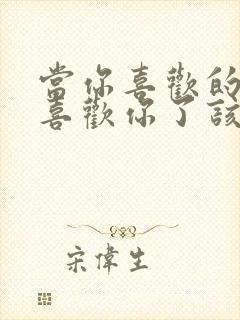 當你喜歡的
喜歡你了該
宋偉生